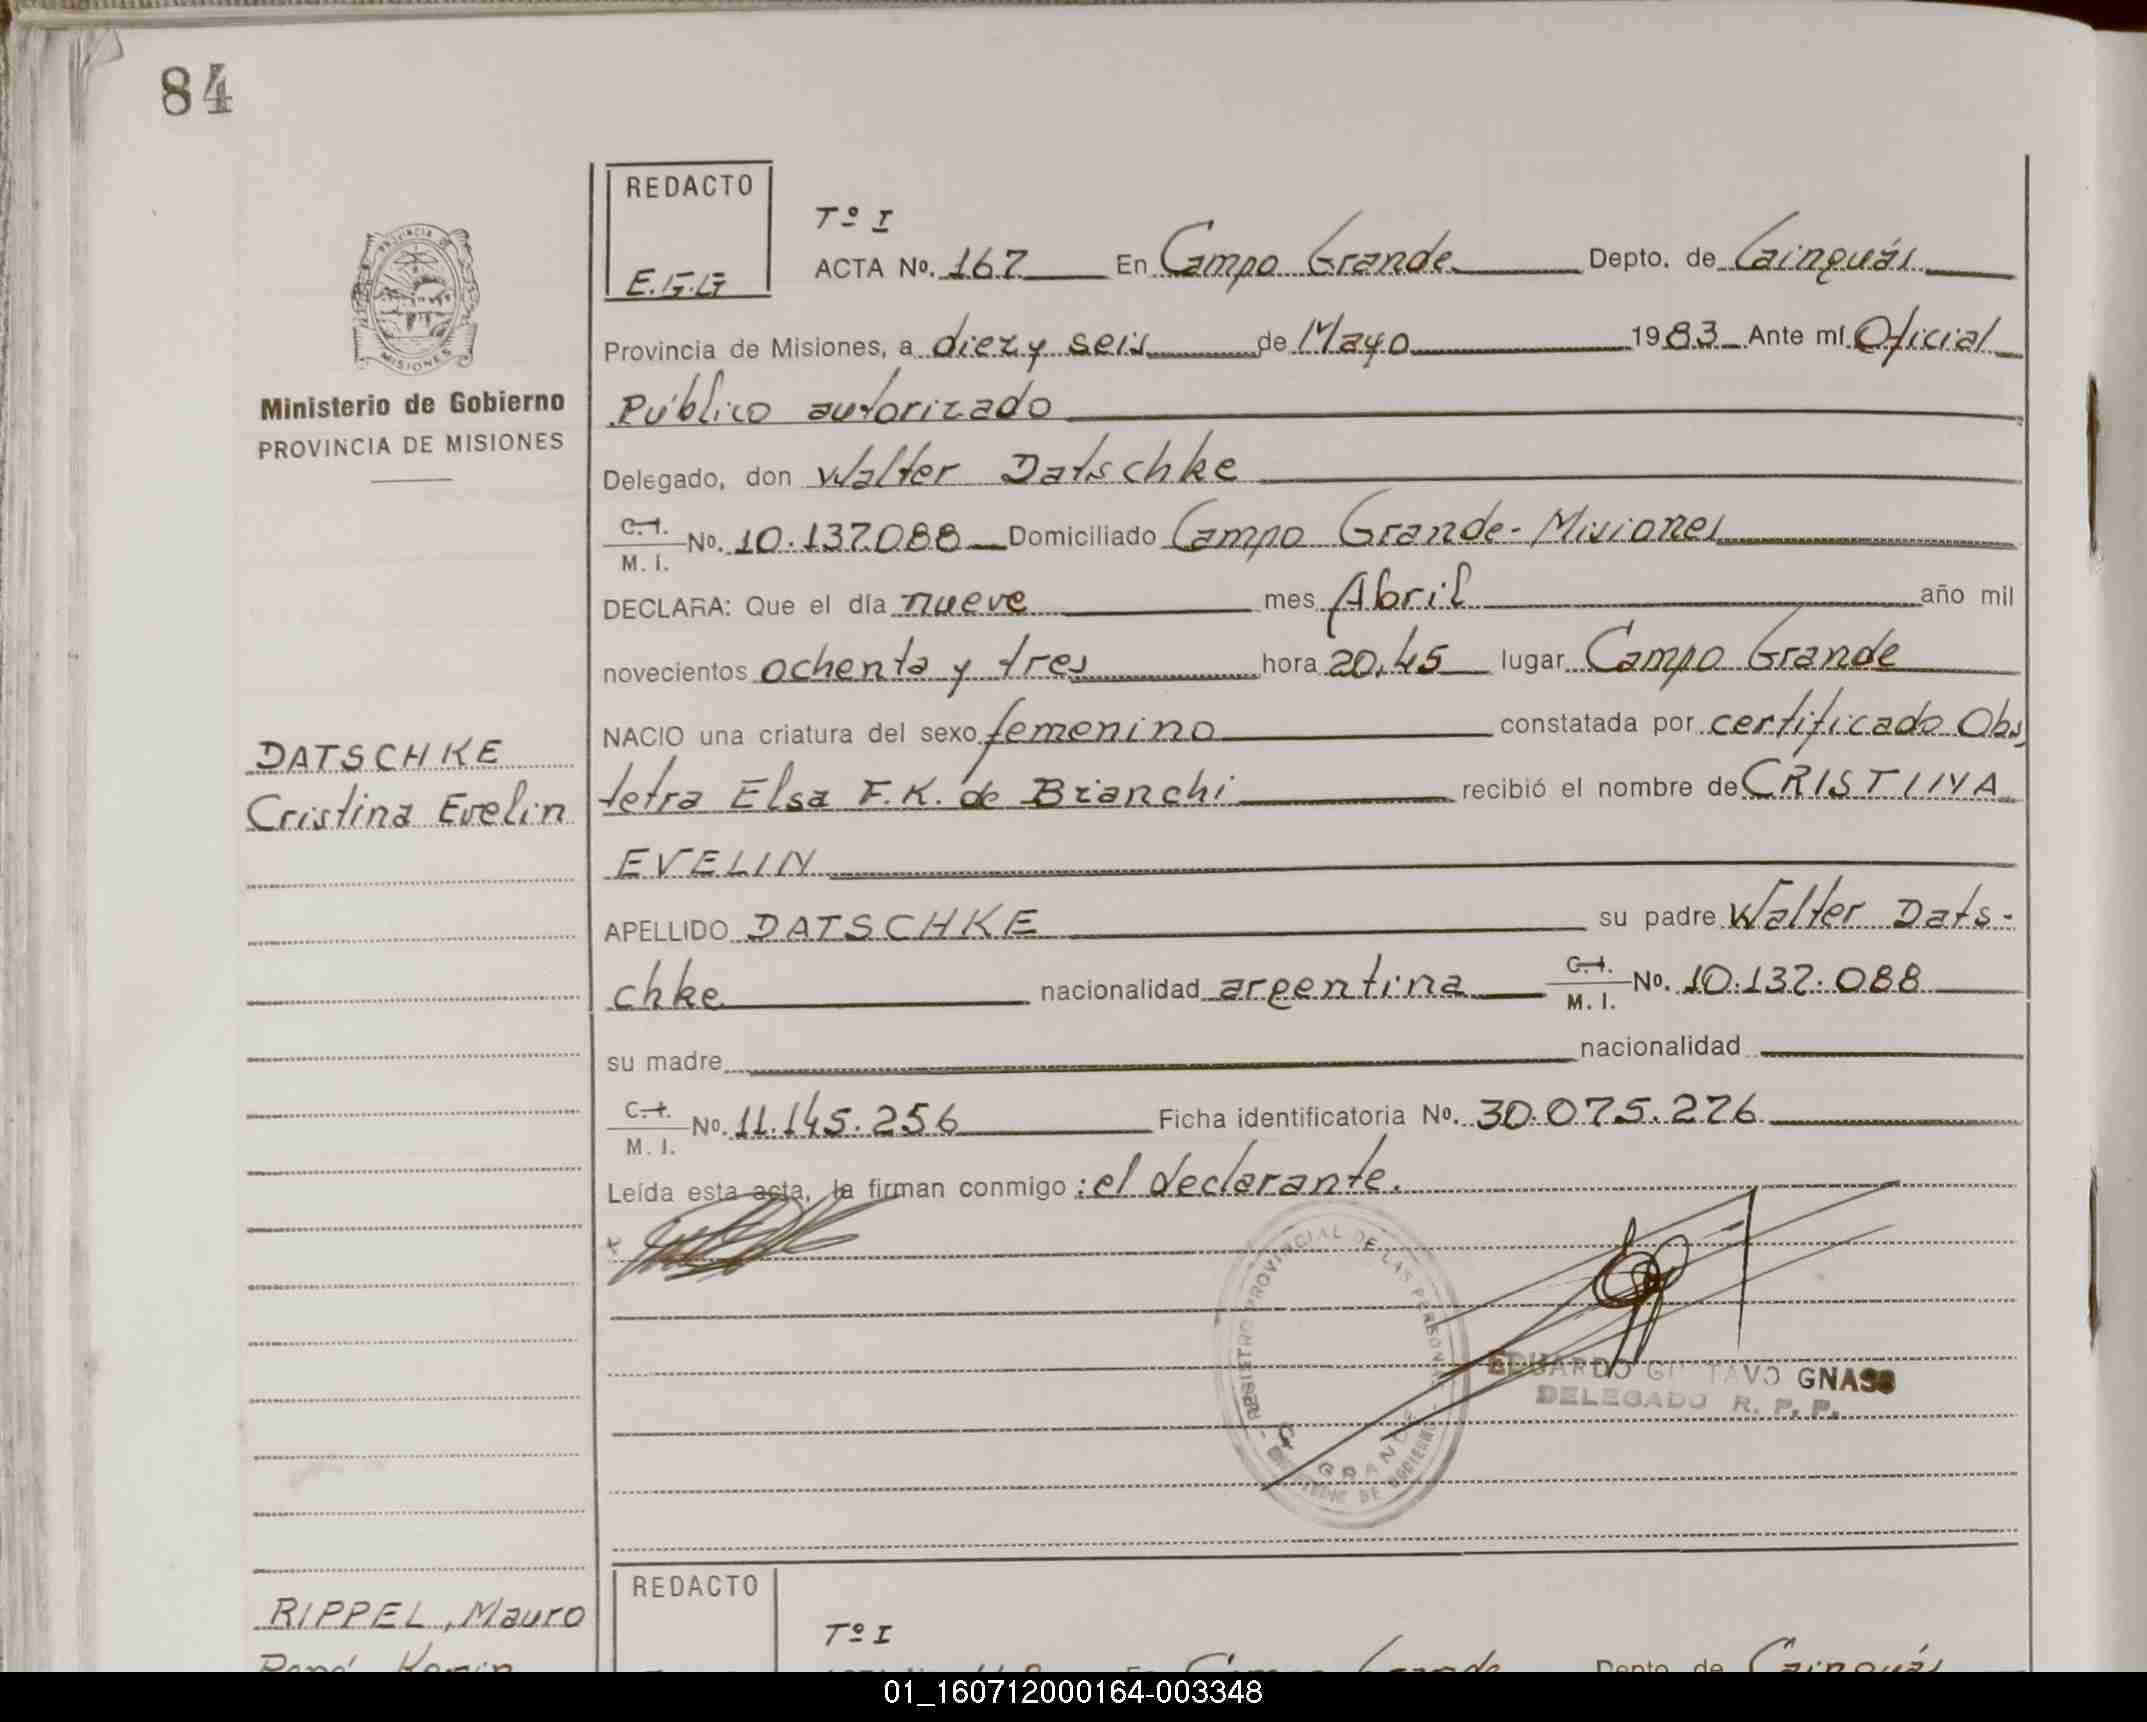 84
REDACTO
E.G.G
Tº I
ACTA Nº. 167 En Campo Grande Depto. de Cainguás
PROVINCIA DE MISIONES
Ministerio de Gobierno
PROVINCIA DE MISIONES
Provincia de Misiones, a diez y seis de Mayo 1983 Ante mí Oficial
Público autorizado
Delegado, don Walter Datschke
C.I. M. I. Nº. 10.137.088 Domiciliado Campo Grande-Misiones
DECLARA: Que el día nueve mes Abril año mil
novecientos ochenta y tres hora 20,45 lugar Campo Grande
NACIO una criatura del sexo femenino constatada por certificado Obs
DATSCHKE
Cristina Evelin
tetra Elsa F.K. de Bianchi recibió el nombre de CRISTINA
EVELIN
APELLIDO DATSCHKE su padre Walter Dats-
chke nacionalidad argentina C.I. M. I. Nº. 10.137.088
su madre nacionalidad
C.I. M. I. Nº. 11.145.256 Ficha identificatoria Nº. 30.075.276
Leída esta acta, la firman conmigo: el declarante.
REGISTRO PROVINCIAL DE LAS PERSONAS
GRANDE
EDUARDO GUSTAVO GNASS
DELEGADO R. P. P.
REDACTO
RIPPEL, Mauro
Tº I
René Kevin
Campo Grande Depto. de Cainguás
01_160712000164-003348